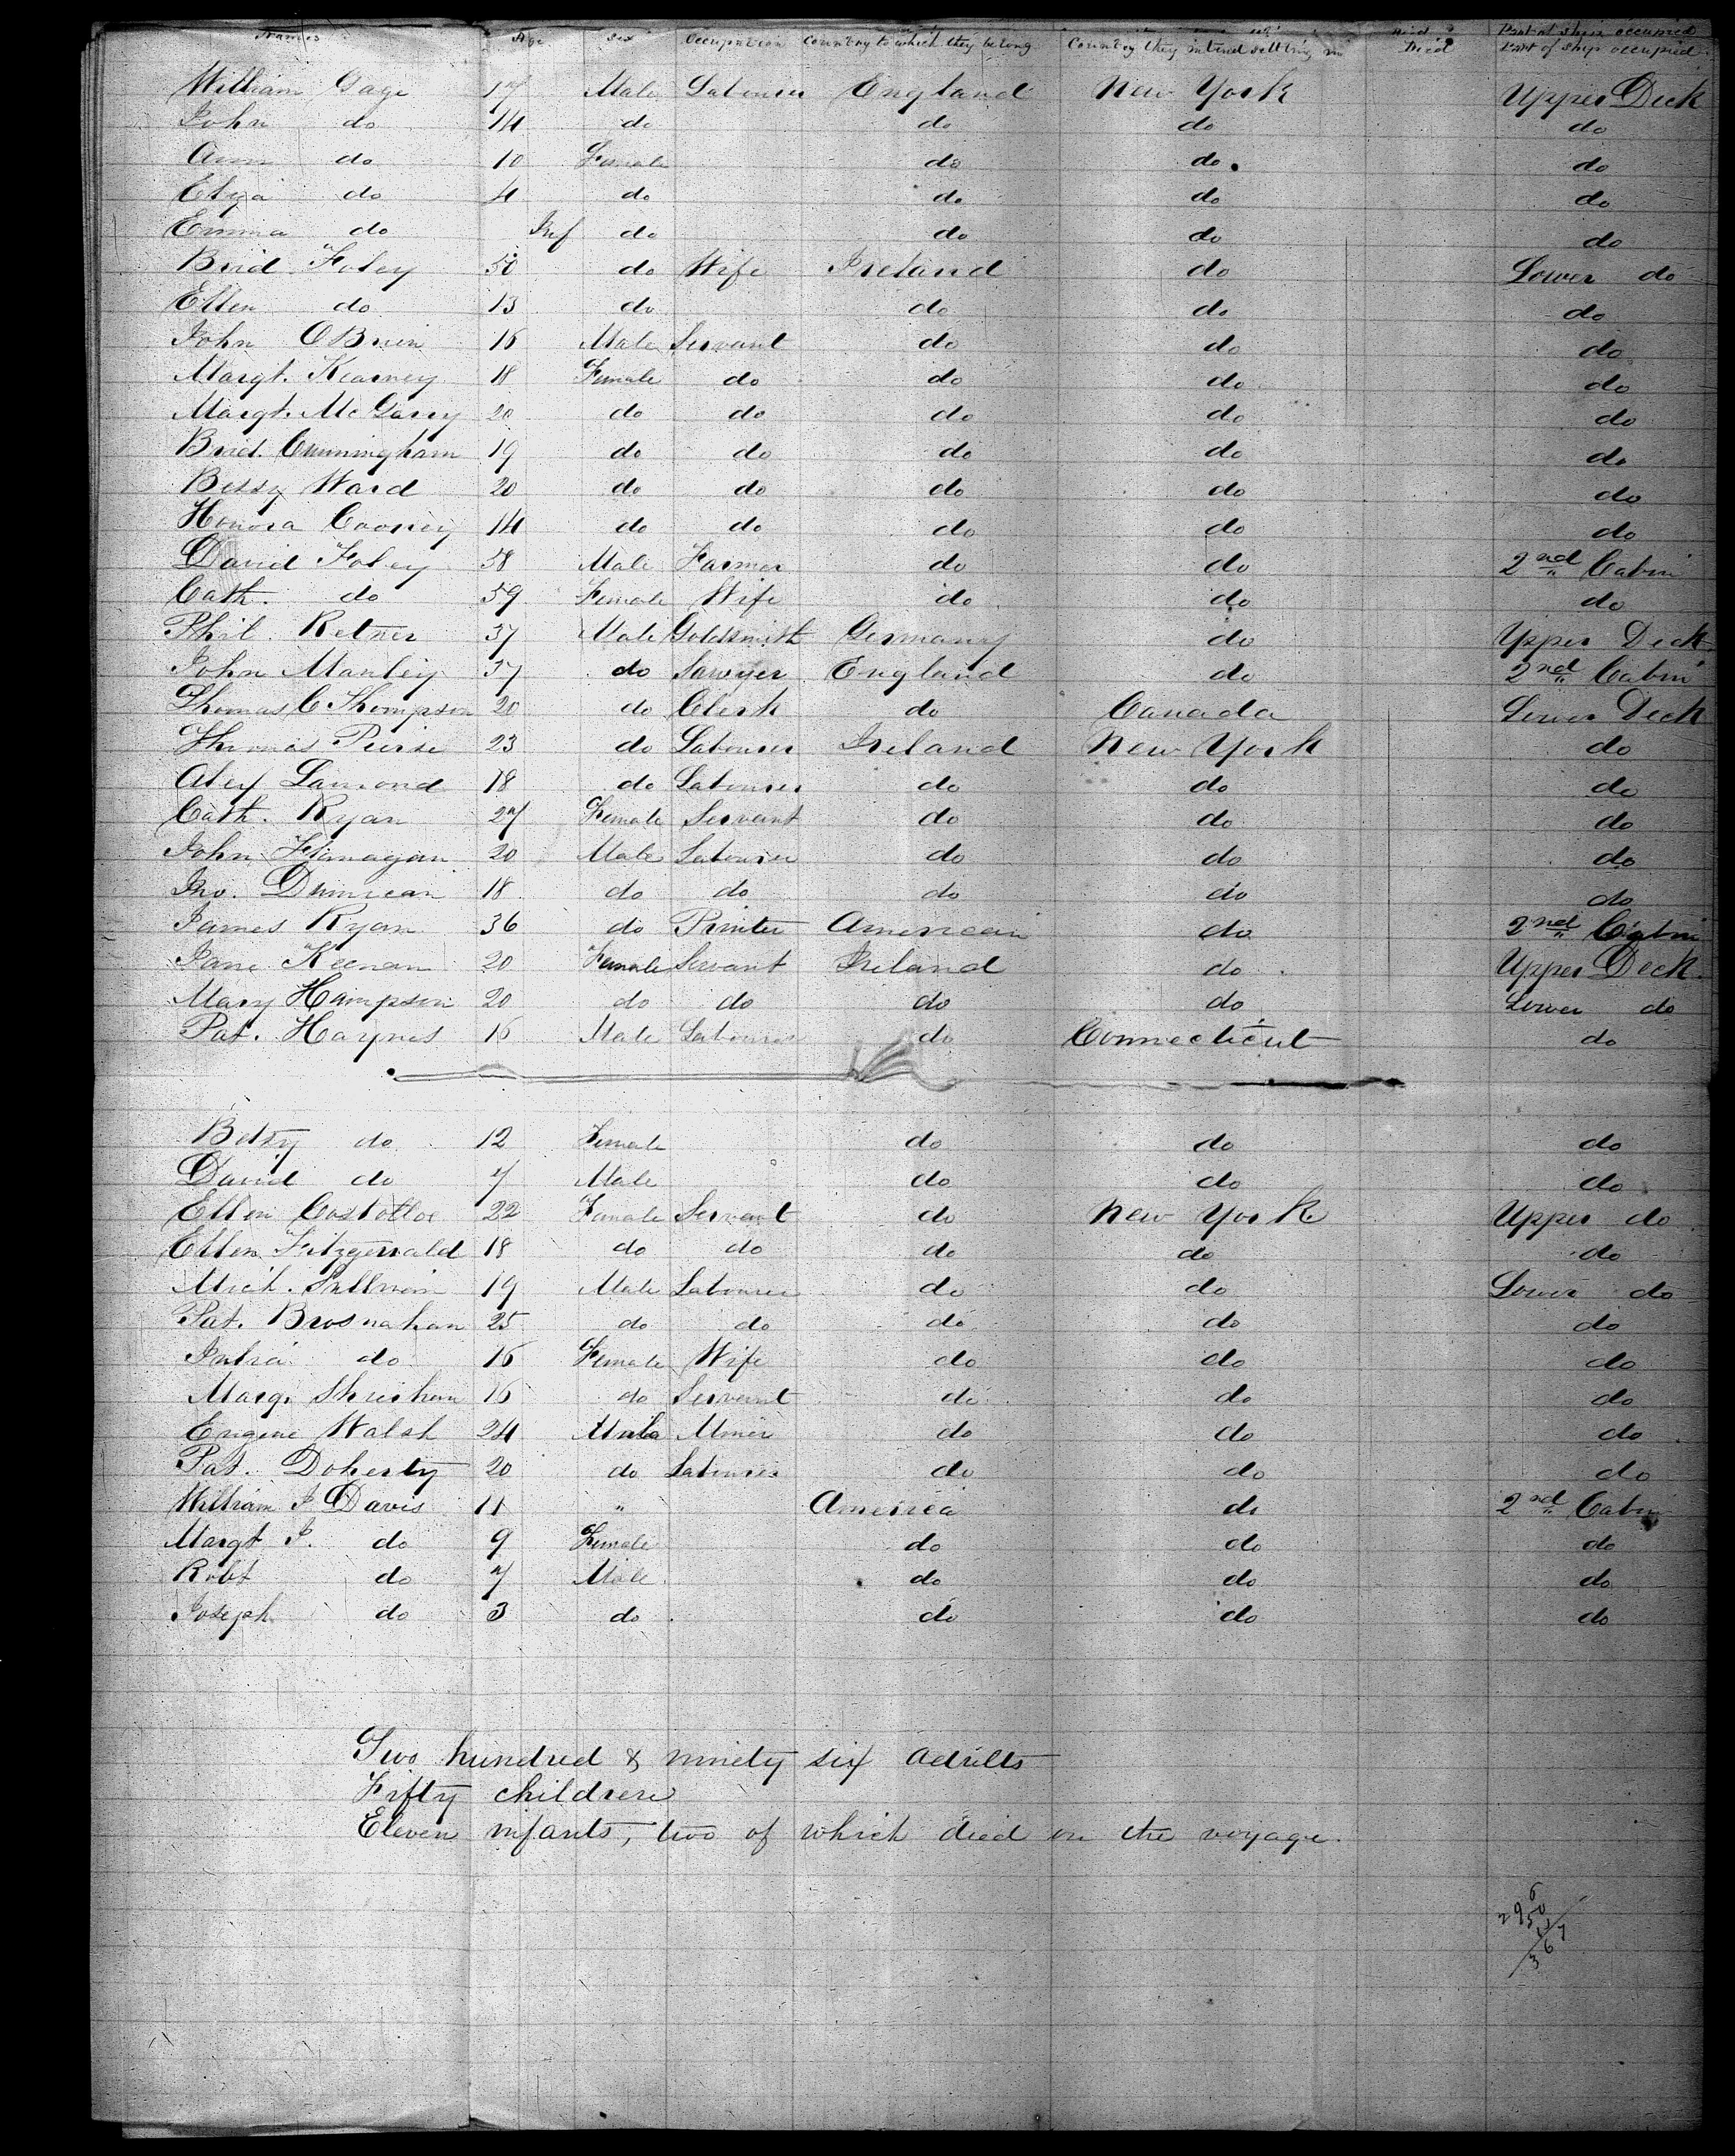 Names Age Sex Occupation Country to which they belong Country they intend settling in Died Part of ship occupied
William Gage 17 Male Labourer England New York Upper Deck
John do 14 do do do do
Ann do 10 Female do do do
Eliza do 4 do do do do
Emma do Inf do do do do
Brid. Foley 50 do Wife Ireland do Lower do
Ellen do 13 do do do do
John OBrien 16 Male Servant do do do
Margt. Kearney 18 Female do do do do
Margt. McGarry 20 do do do do do
Brid. Cunningham 19 do do do do do
Bessy Ward 20 do do do do do
Honora Cooney 14 do do do do do
David Foley 58 Male Farmer do do 2nd Cabin
Cath. do 59 Female Wife do do do
Phil. Retner 37 Male Goldsmith Germany do Upper Deck
John Manley 37 do Sawyer England do 2nd Cabin
Thomas C Thompson 20 do Clerk do Canada Lower Deck
Thomas Peirse 23 do Labourer Ireland New York do
Aley Lamond 18 do Labourer do do do
Cath. Ryan 27 Female Servant do do do
John Flanagan 20 Male Labourer do do do
Jno. Dunnean 18 do do do do do
James Ryan 36 do Printer American do 2nd Cabin
Jane Keenan 20 Female Servant Ireland do Upper Deck
Mary Hampson 20 do do do do Lower do
Pat. Haynes 16 Male Labourer do Connecticut do
Betsy do 12 Female do do do
David do 7 Male do do do
Ellen Costolloe 22 Female Servant do New York Upper do
Ellen Fitzgerrald 18 do do do do do
Mich. Sullivan 19 Male Labourer do do Lower do
Pat. Brosnahan 25 do do do do do
Julia do 16 Female Wife do do do
Marg. Sheehan 16 do Servant do do do
Eugene Walsh 24 Male Miner do do do
Pat. Doherty 20 do Labourer do do do
William J Davis 11 " America do 2nd Cabin
Margt J. do 9 Female do do do
Robt do 7 Male do do do
Joseph do 3 do do do do
Two hundred & ninety six adults
Fifty children
Eleven infants, two of which died on the voyage.
296
50
11
357